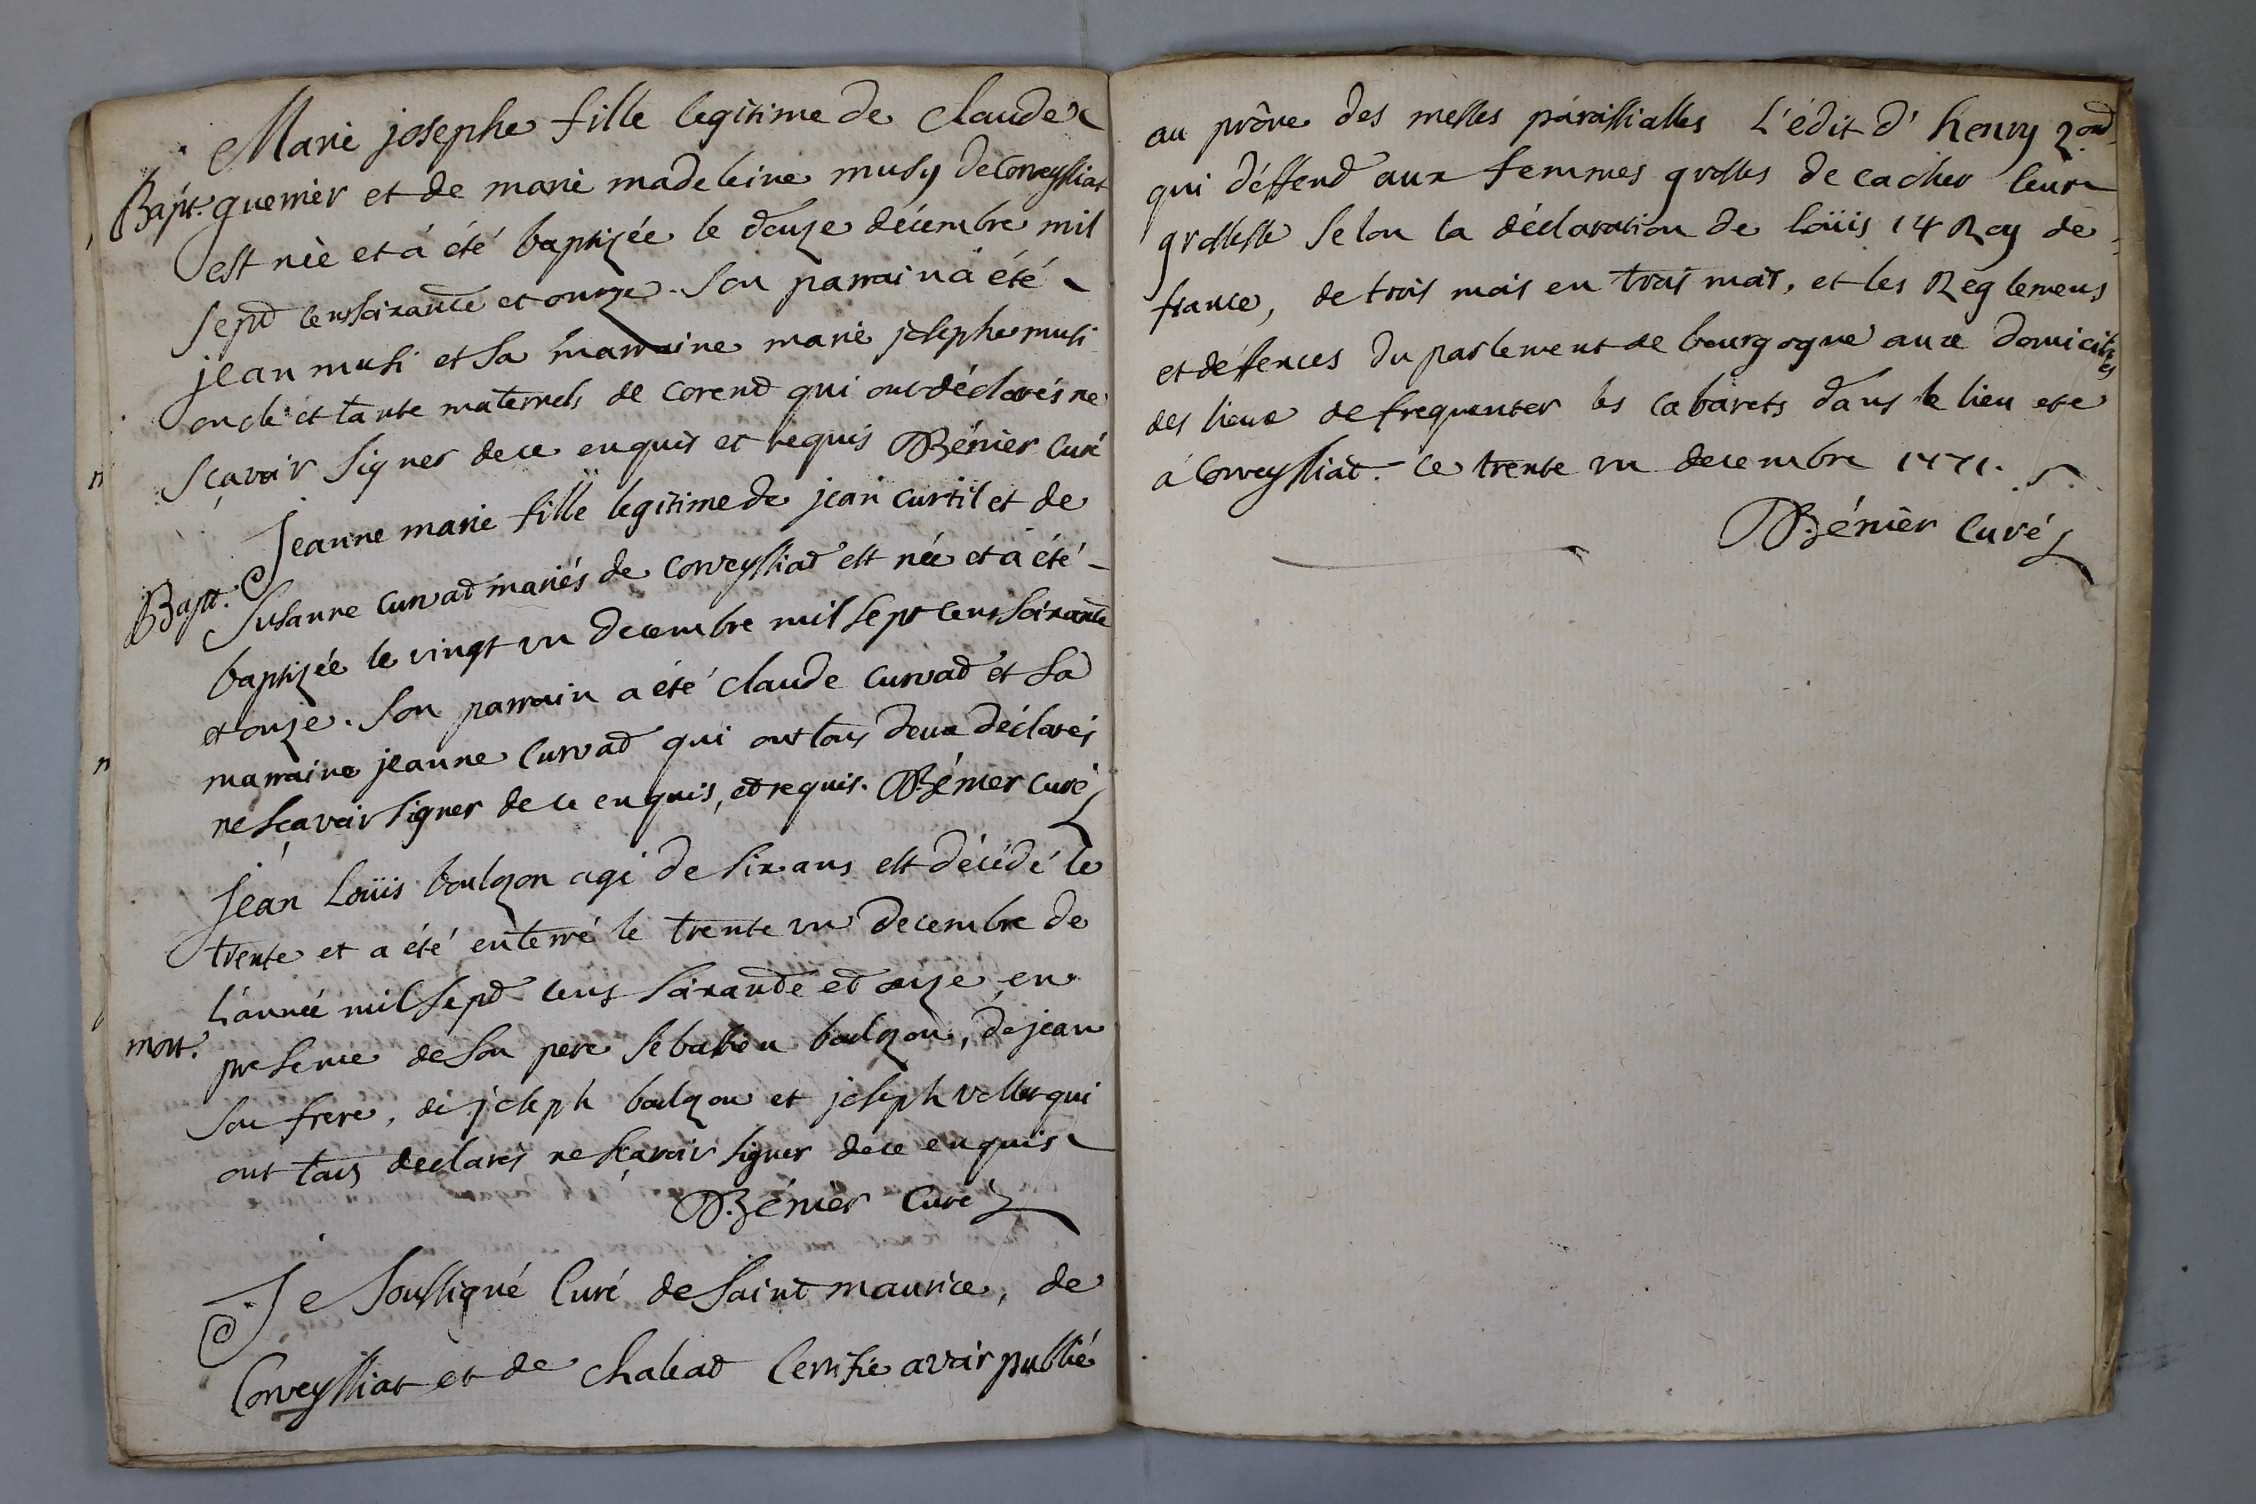 Marie josephe fille legitime de Claude
Bapt. guerrier et de marie madeleine musy de Corveyssiat
est née et á été baptizée le douze décembre mil
sept cens soixante et onze. Son parrain á été
jean musi et sa marraine marie josephe musi
oncle et tante maternels de corend qui ont déclarés ne
sçavoir signer de ce enquis et requis Bénier Curé
Jeanne marie fille legitime de jean curtil et de
Bapt. Susanne Curvat mariés de Corveyssiat est née et á été
baptizée le vingt un decembre mil sept cens soixante
et onze. Son parrain a été claude Curvat et sa
marraine jeanne Curvat qui ont tous deux déclarés
ne sçavoir signer de ce enquis, et requis. Bénier Curé
Jean Loüis boulgon agé de six ans est décédé le
trente et a été enterré le trente un decembre de
l'année mil sept cens soixante et onze en
mort. presence de son pere sebastien boulgon, de jean
son frere, de joseph boulgon et joseph vollet qui
ont tous declarés ne sçavoir signer de ce enquis
Bénier Curé
Je soussigné Curé de Saint maurice, de
Corveyssiat et de chaleat Certifie avoir publié
au prône des messes paroissialles L'édit d'henry 2ond
qui déffend aux femmes grosses de cacher leur
grossesse selon la déclaration de Loüis 14 Roy de
france, de trois mois en trois mois, et les Reglemens
et déffences du parlement de bourgogne aux domiciliés
des lieux de frequenter les cabarets dans le lieu etc
á Corveyssiat. Ce trente un decembre 1771.
Bénier Curé